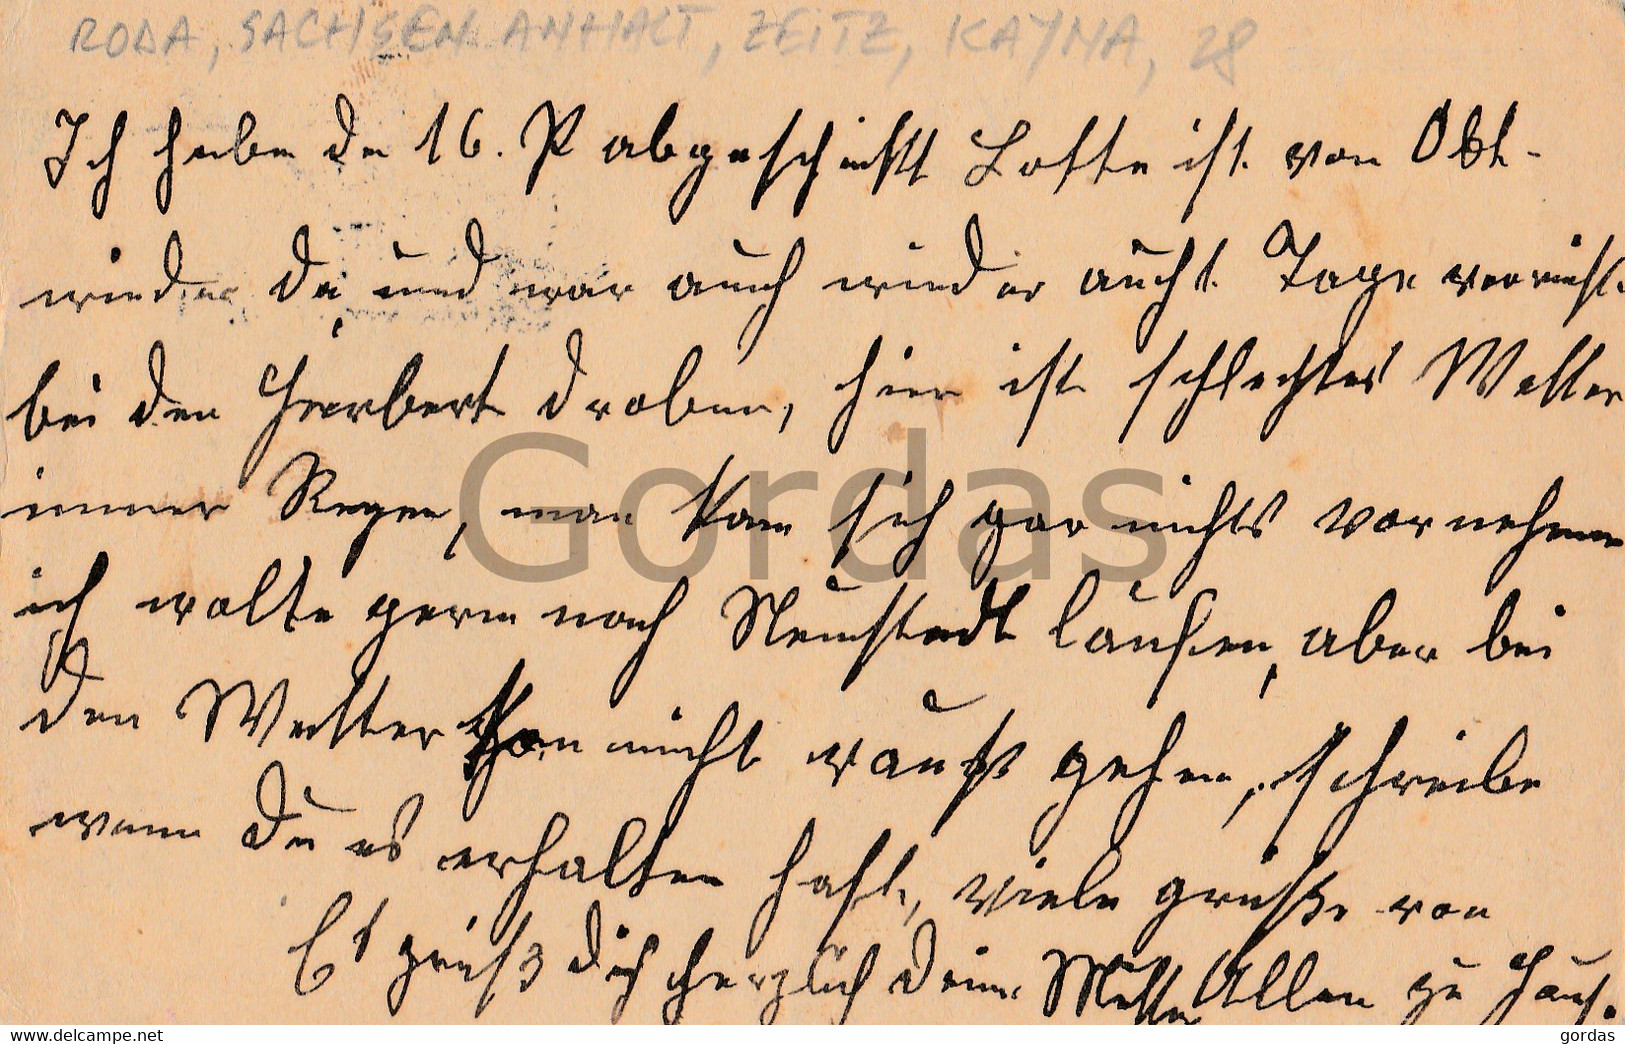 RODA, SACHSEN ANHALT, ZEITZ, KAYNA, 28
Ich habe de 16. P abgeschickt Lotte ist von Obt-
wieder da, und war auch wieder acht Tage verreist
bei den Herbert droben, hier ist schlechtes Wetter
immer Regen, man kan sich gar nichts vornehmen
ich wolte gern nach Neustadt laufen, aber bei
den Wetter kan nicht rauß gehen, schreibe
wenn Du es erhalten hast, viele grüße von
Es grüß dich herzlich deine Mutter Allen zu Haus.
Gordas
www.delcampe.net
gordas